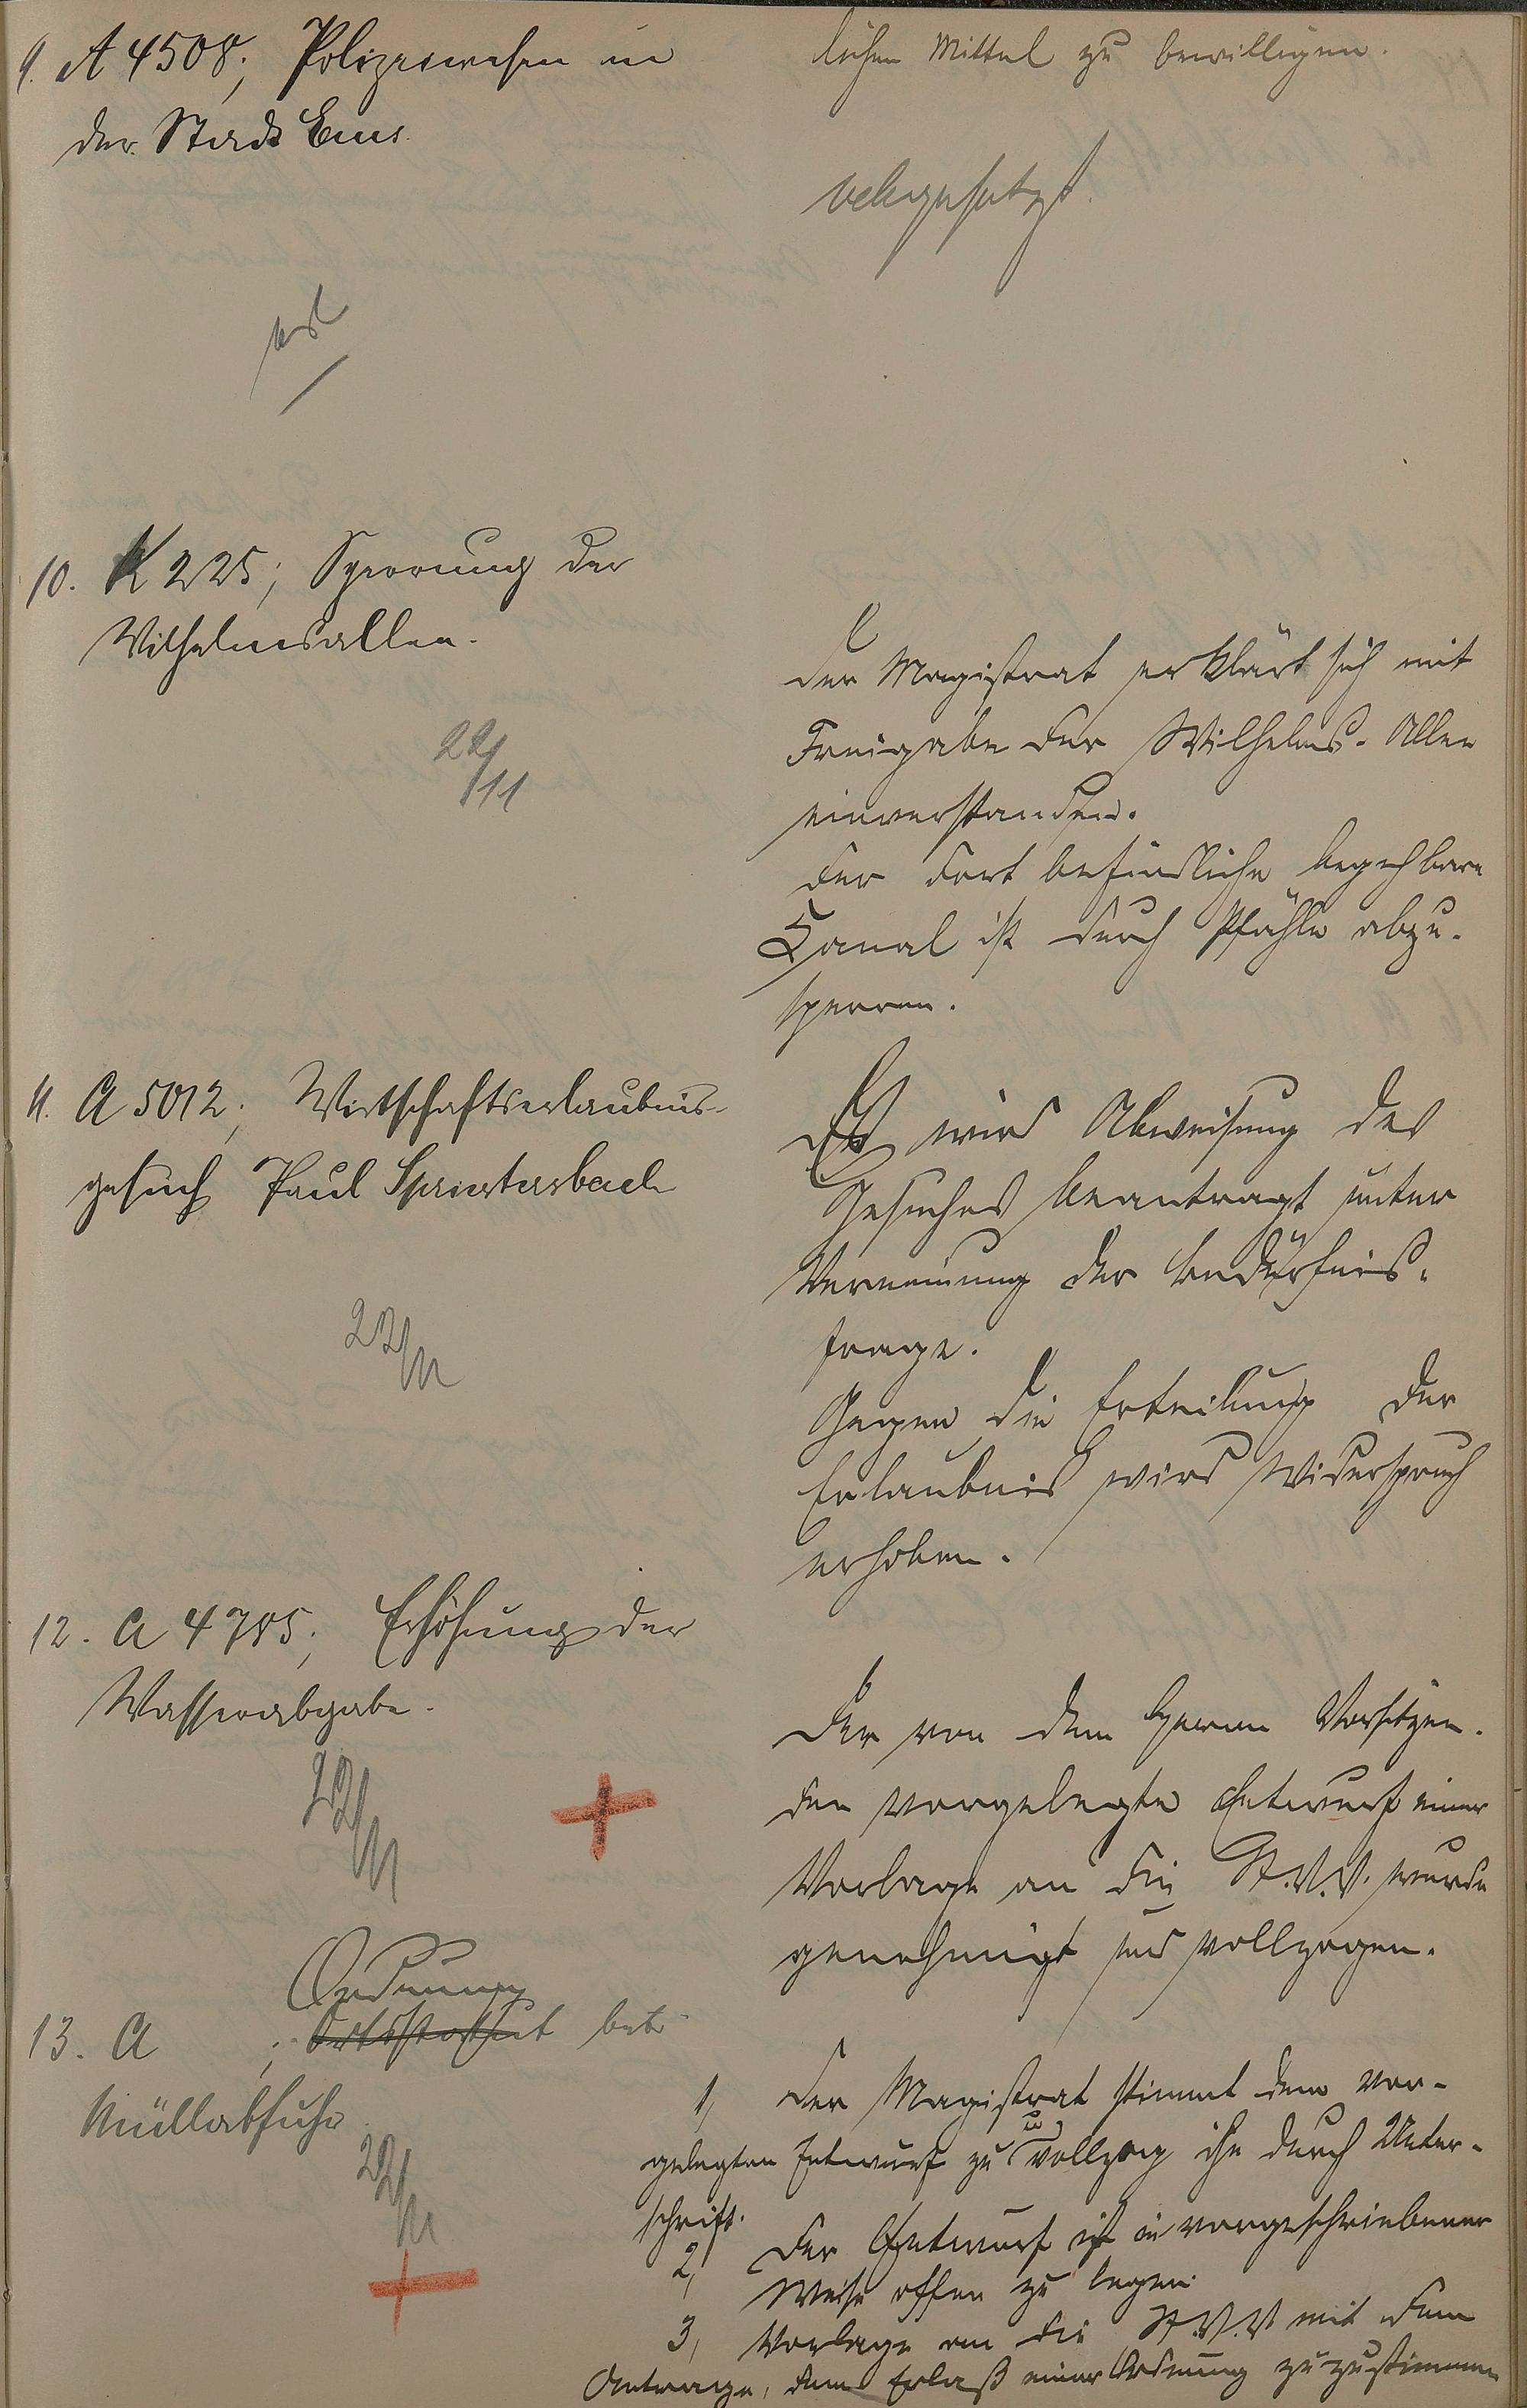 lichen Mittel zu bewilligen.
9. A 4508; Polizeiwesen in
der Stadt Ems.
abgesetzt.
10. K 225; Sperrung der
Wilhelmsallee.
22/11
Der Magistrat erklärt sich mit
Freigabe der Wilhelms-Allee
einverstanden.
Der dort befindliche begehbare
Kanal ist durch Pfähle abzu-
sperren.
11. A 5012; Wirtschaftserlaubnis-
gesuch Paul Spriestersbach
22/11
Es wird Abweisung des
Gesuches beantragt unter
Verneinung der Bedürfnis-
frage.
Gegen die Erteilung der
Erlaubnis wird Widerspruch
erhoben.
12. A 4785; Erhöhung der
Wasserabgabe.
22/11
Der von dem Herrn Vorsitzen-
den vorgelegte Entwurf einer
Vorlage an die St.V.V. wurde
genehmigt und vollzogen.
Ordnung
13. A ; Ortsstatut betr.
Müllabfuhr.
22/11
1, Der Magistrat stimmt dem vor-
gelegten Entwurf zu u. vollzog ihn durch Unter-
schrift.
2, Der Entwurf ist in vorgeschriebener
Weise offen zu legen.
3, Vorlage an die St.V.V. mit dem
Antrage, dem Erlaß einer Ordnung zuzustimmen